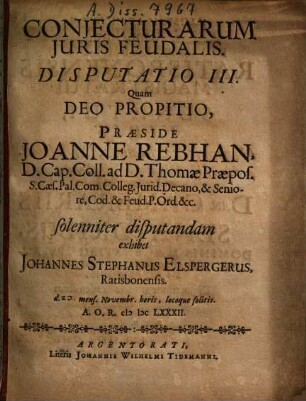 A. Diss. 7967
CONJECTURARUM
JURIS FEUDALIS.
DISPUTATIO III.
Quam
DEO PROPITIO,
PRÆSIDE
JOANNE REBHAN
D. Cap. Coll. ad D. Thomæ Præpos.
S. Cæs. Pal. Com. Colleg. Jurid. Decano, & Senio-
re, Cod. & Feud. P. Ord. &c.
solenniter disputandam
exhibet
JOHANNES STEPHANUS ELSPERGERUS,
Ratisbonensis.
mens. Novembr. horis, locoque solitis.
A. O. R. cIↄ Iↄc LXXXII.
ARGENTORATI,
Literis JOHANNIS WILHELMI TIDEMANNI,